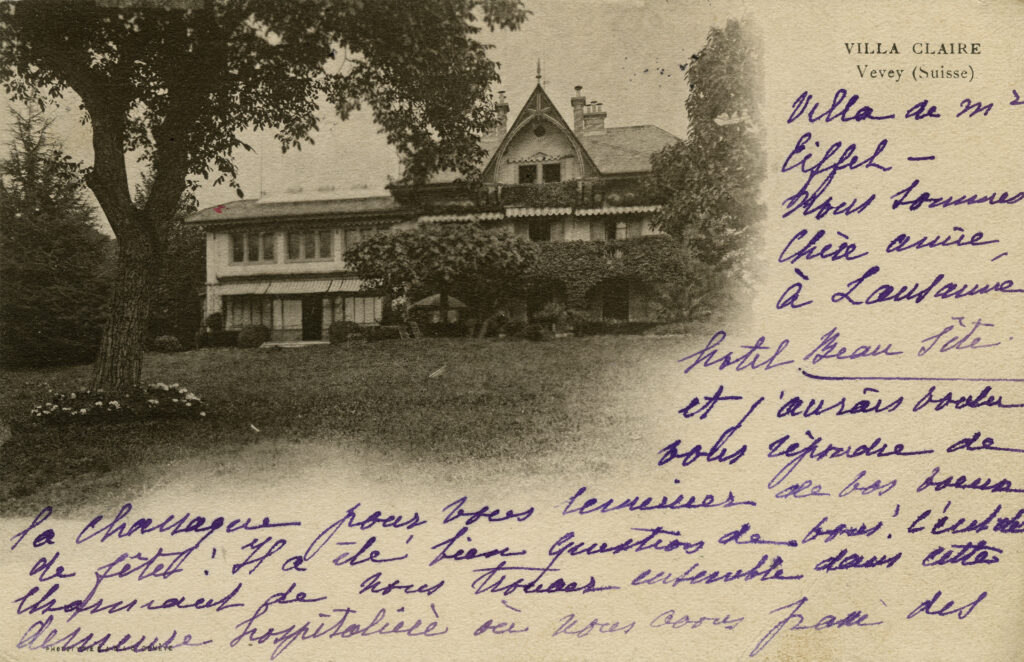 VILLA CLAIRE
Vevey (Suisse)
Villa de Mr
Eiffel —
Nous sommes
Chère amie
à Lausanne
hotel Beau Site.
et j'aurais voulu
vous répondre de
la pour vous de vos voeux
de fêtes! Il a été bien question de vous! C'eut été
charmant de nous trouver ensemble dans cette
demeure hospitalière où nous avons passé des